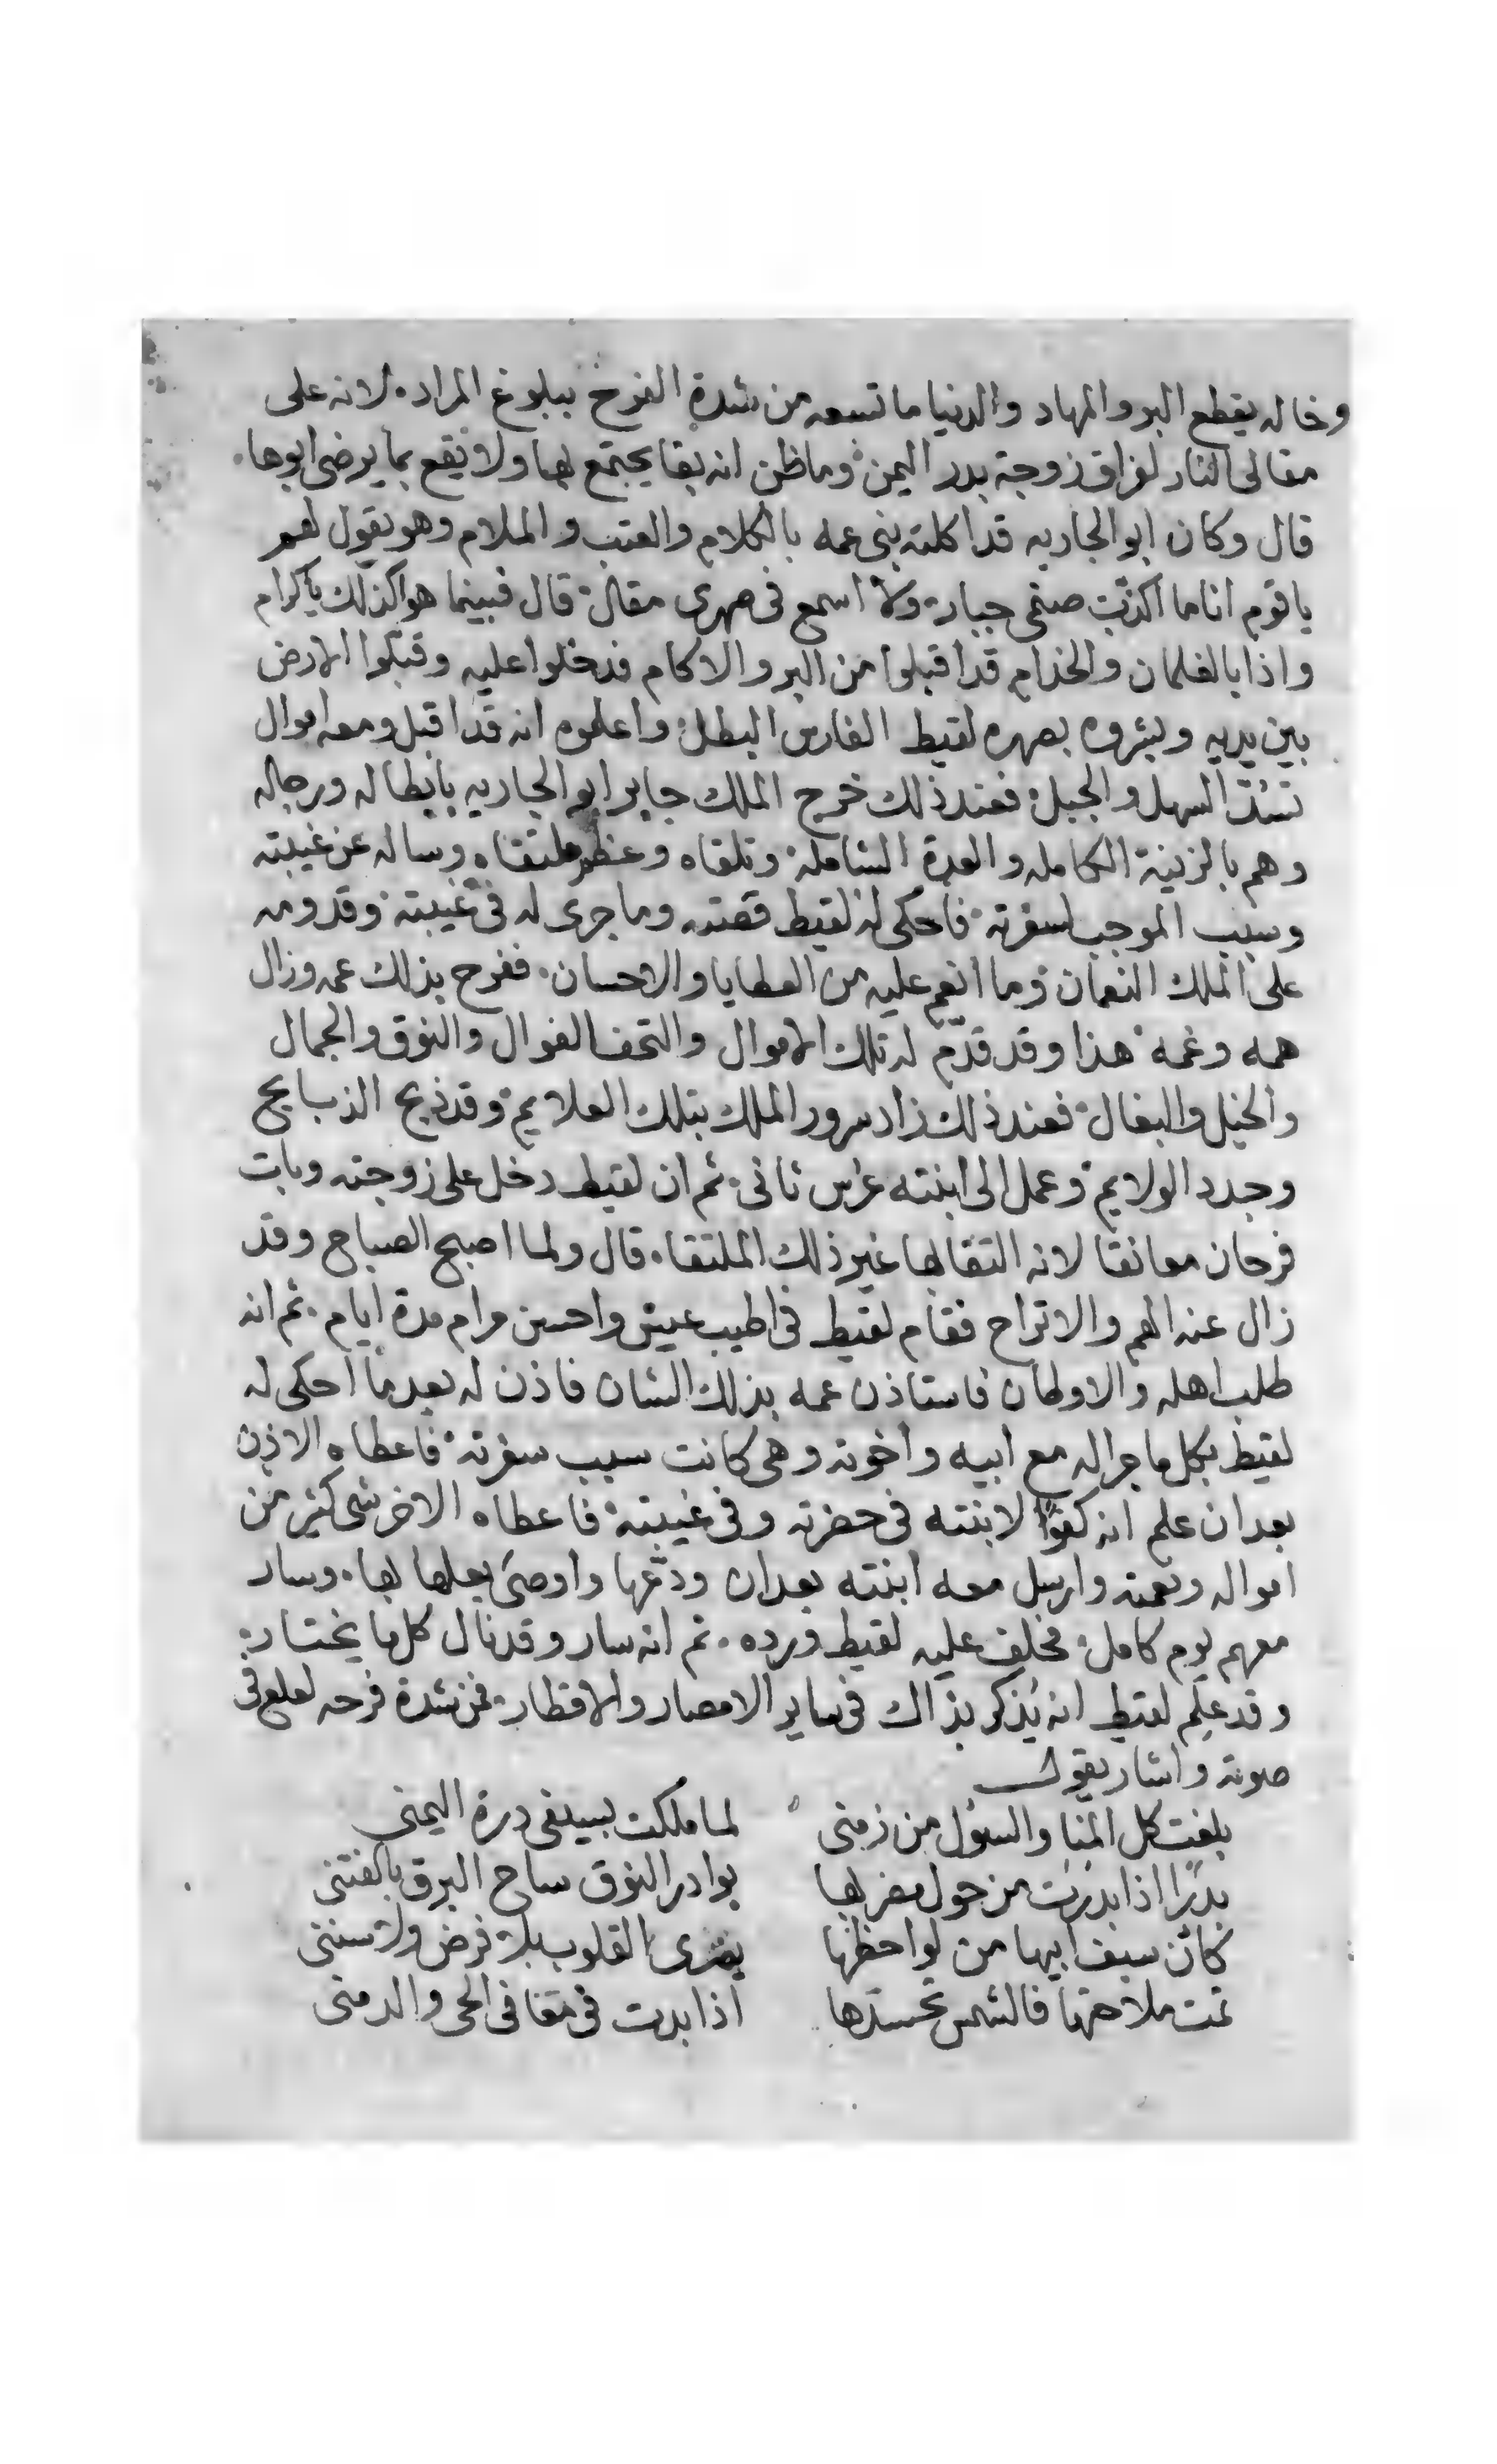 وخاله يقطع البر والمهاد والدنيا ما تسعه من شدة الفرح ببلوغ المراد. لانه على
مقالى النار لفراق زوجة بدر اليمن وما ظن انه بقا يجتمع بها ولا يقع بما يرضى ابوها.
قال وكان ابو الجاريه قد اكلته بنى عمه بالكلام والعتب والملام وهو يقول لهم
يا قوم انا ما اكذب صنمى جبار ولا اسمع فى صهرى مقال قال فبينما هو اكذلك يا كرام
واذا بالغلمان والخدام قد اقبلوا من البر والاكام فدخلوا عليه وقبلوا الارض
بين يديه وبشروه بصهره لقيط الفارس البطل واعلموه انه قد اقبل ومعه اموال
تسد السهل والجبل فعند ذلك خرج الملك جابر ابو الجاريه بابطاله ورجاله
وهم بالزينة الكامله والعدة الشامله وتلقاه وعظم ملتقاه وساله عن غيبته
وسبب الموجب لسفرته فاحكى له لقيط قصته وما جرى له فى غيبته وقدومه
على الملك النعمان وما انعم عليه من العطايا والاحسان. ففرح بذلك عمه وزال
همه وغمه هذا وقد قدّم له تلك الاموال والتحف الغوال والنوق والجمال
والخيل والبغال فعند ذلك زاد سرور الملك بتلك العلايم وقد ذبح الذبايح
وجدد الولايم وعمل الى ابنته عرس ثانى. ثم ان لقيط دخل على زوجته وبات
فرحان معانقا لانه التقا لها غير ذلك الملتقا. قال ولما اصبح الصباح وقد
زال عنه الهم والاتراح فقام لقيط فى اطيب عيش واحسن مرام مدة ايام. ثم انه
طلب اهله والاوطان فاستاذن عمه بذلك الشان فاذن له بعد ما احكى له
لقيط بكل ما جرا له مع ابيه واخوته وهى كانت سبب سفرته فاعطاه الاذن
بعد ان علم انه كفوًا لابنته فى حضرته وفى غيبته فاعطاه الاخر شى كثير من
امواله ونعمته وارسل معه ابنته بعد ان ودّعها واوصى بعلها بها. وسار
معهم يوم كامل. فحلف عليه لقيط ورده. ثم انه سار وقد نال كل ما يختار.
وقد علم لقيط انه يذكر بذاك فى ساير الامصار والاقطار فمن شدة فرحه لعلع فى
صوته واشار يقول
بلغت كل المنا والسؤل من زمنى لما ملكت بسيفى درة اليمنى
بدرًا اذا بدرت من حول مضربها بوادر النوق ساح البرق بالفتنى
كأن سيف ابيها من لواحظها يفرى القلوب بلا فرض ولا سننى
تمت ملاحتها فالشمس تحسدها اذا بدت فى مغانى الحى والدمنى